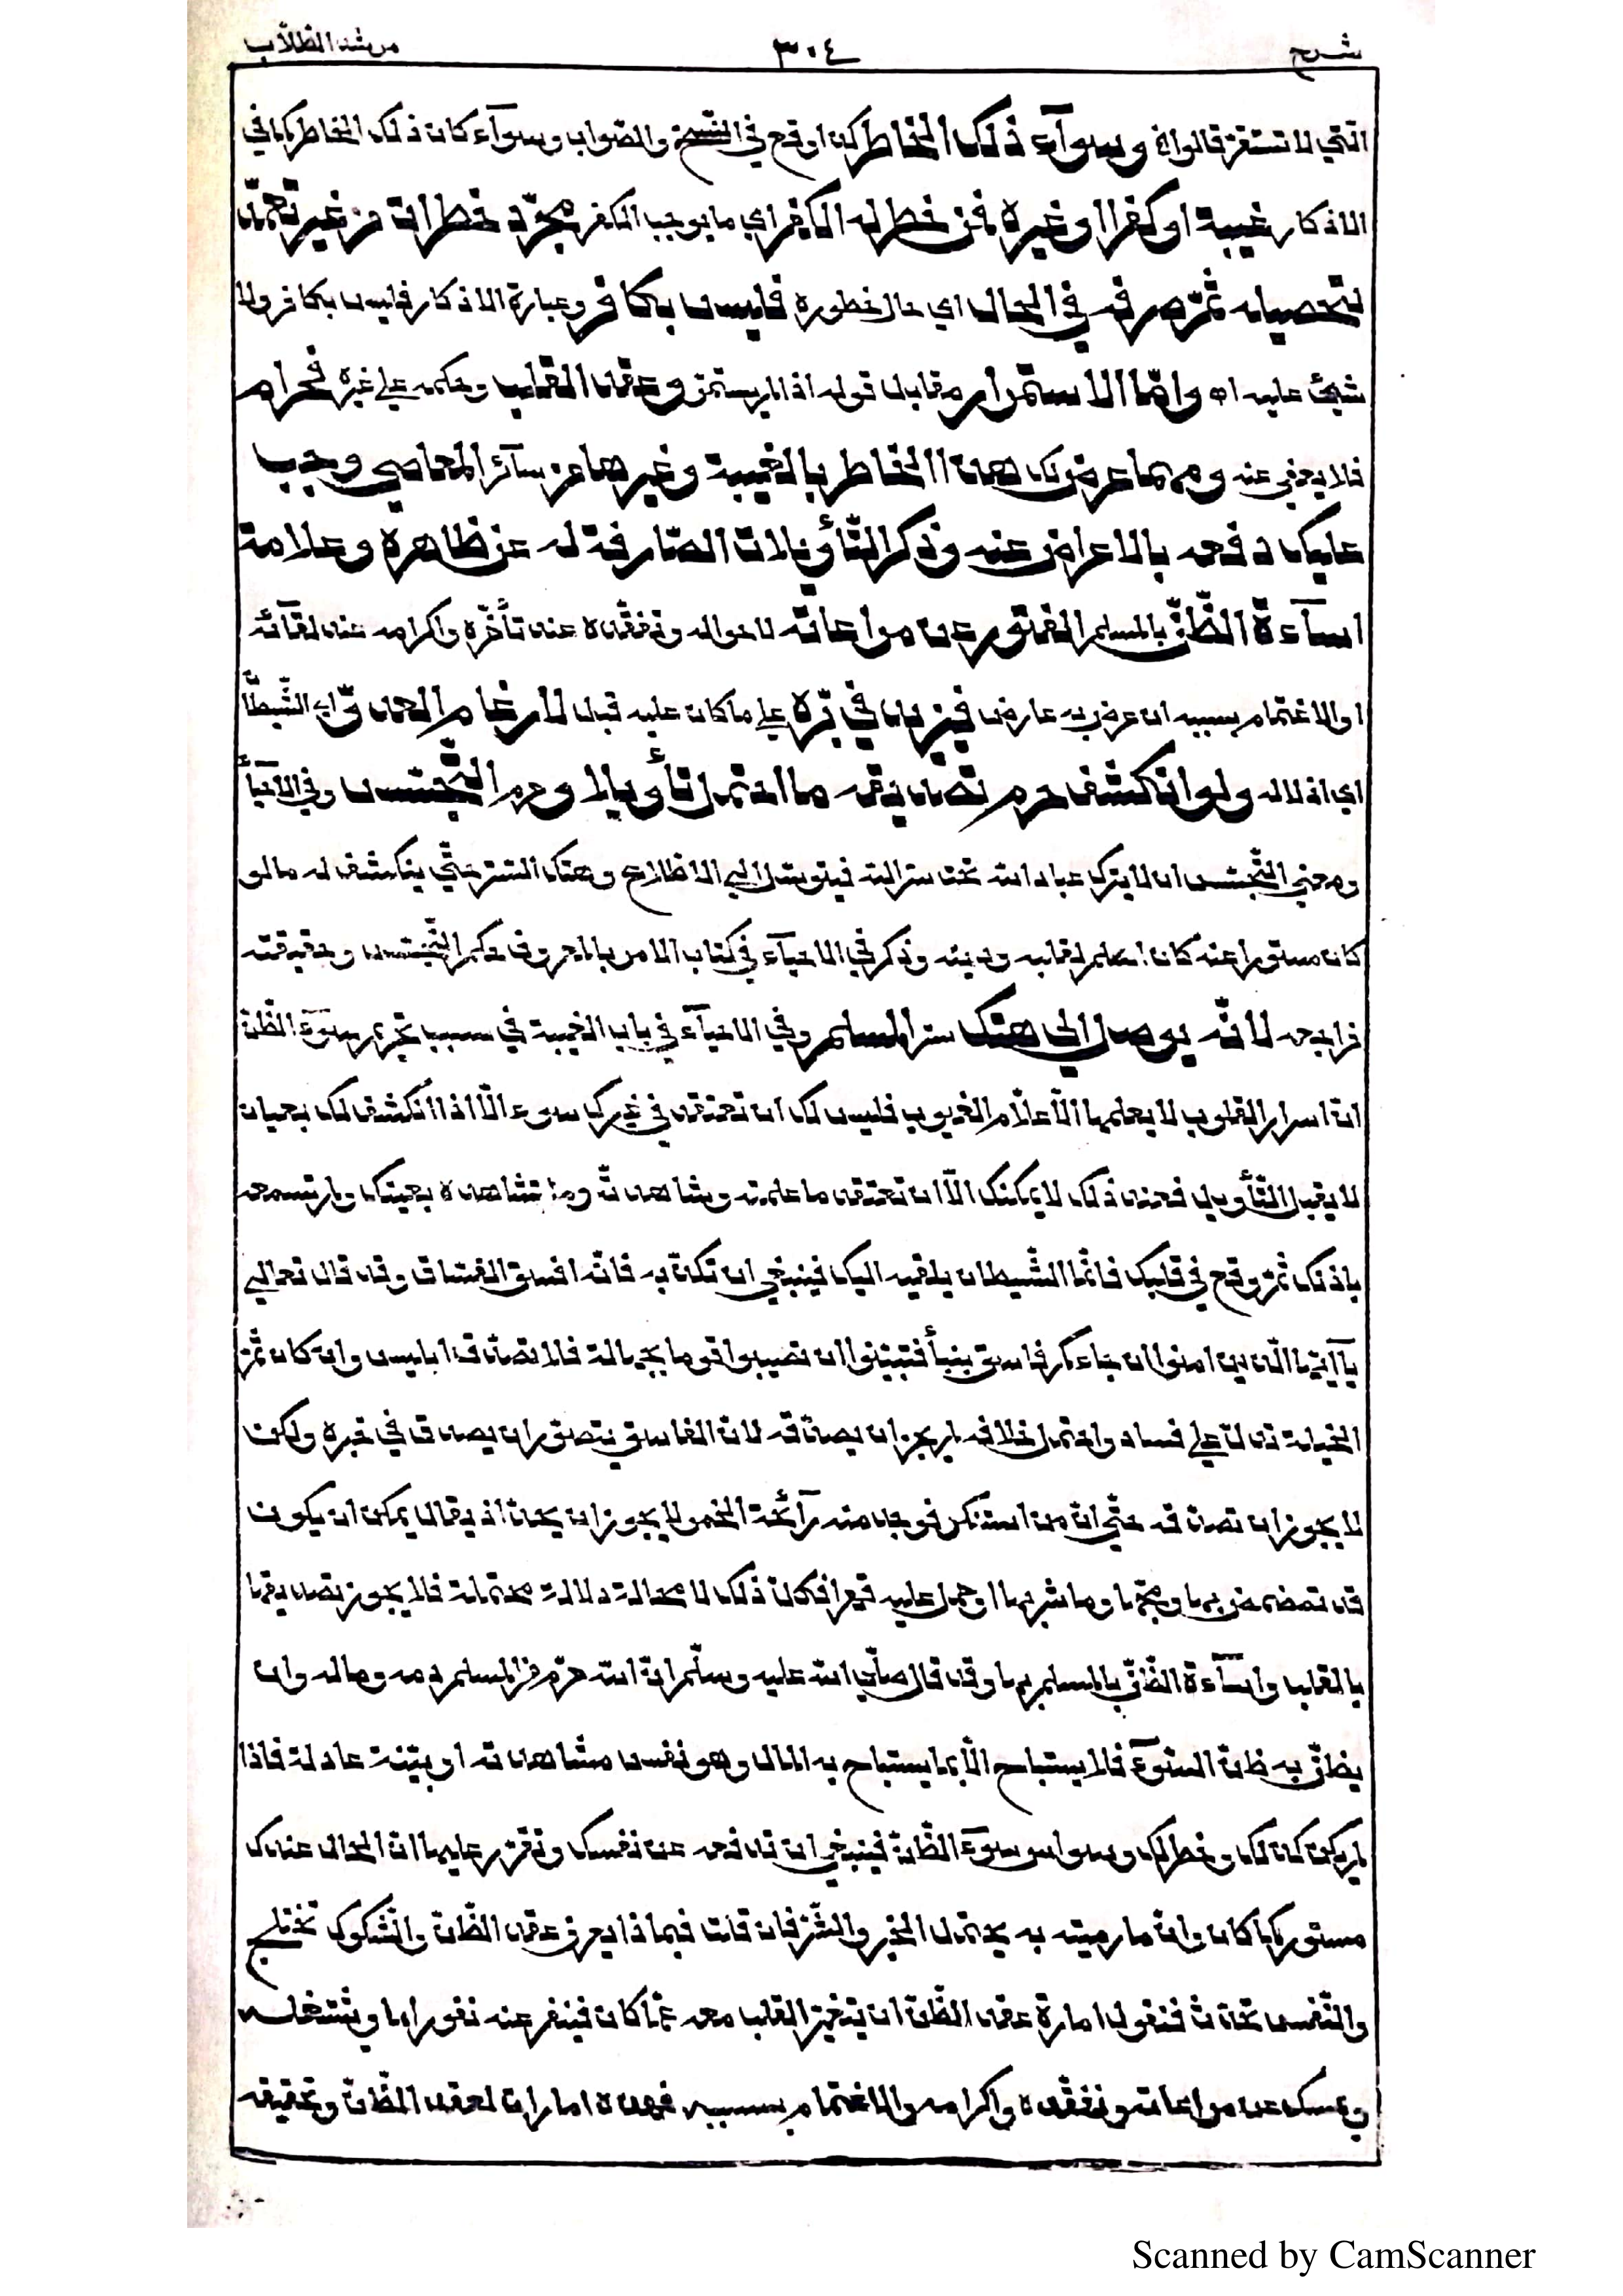 شرح ٣٠٤ مرشد الطّلّاب
الّتي لا تستقرّ قالوا اﻫ وسوآء ذلك الخاطر كذا وقع في النّسخ والصّواب وسوآء كان ذلك الخاطر كما في
الاذكار غيبة او كفرا او غيره فمن خطر له الكفر اي ما يوجب الكفر مجرّد خطرات من غير تعمّد
لتحصيله ثمّ صرفه في الحال اي حال خطوره فليس بكافر وعبارة الاذكار فليس بكافر ولا
شيئ عليه اه وامّا الاستمرار مقابل قوله اذا لم يستمرّ وعقد القلب وحكمه على غيره فحرام
فلا يعفى عنه ومهما عرض لك هذا الخاطر بالغيبة وغيرها من سآئر المعاصي وجب
عليك دفعه بالاعراض عنه وذكر التّأويلات الصّارفة له عن ظاهره وعلامة
اسآءة الظّنّ بالمسلم الفتور عن مراعاته لاحواله وتفقّده عند تأخّره واكرامه عند لقآئه
او الاغتمام بسببه ان عرض به عارض فيزيد في برّه على ما كان عليه قبل لارغام العدوّ اي الشّيطان
اي اذلاله ولو انكشف حرم تصديقه ما احتمل تأويلا وحرم التّجسّس وفي الاحيآء
ومعنى التّجسّس ان لا يترك عباد الله تحت ستر الله فيتوصّل الى الاطّلاع وهتك السّتر حتّى ينكشف له ما لو
كان مستورا عنه كان اسلم لقلبه ودينه وذكر في الاحيآء في كتاب الامر بالمعروف حكم التّجسّس وحقيقته
فراجعه لانّه يوصل الى هتك ستر المسلم وفي الاحيآء في باب الغيبة في سبب تحريم سوء الظّنّ
انّ اسرار القلوب لا يعلمها الّا علّام الغيوب فليس لك ان تعتقد في غيرك سوء الّا اذا انكشف لك بعيان
لا يقبل التّأويل فعند ذلك لا يمكنك الّا ان تعتقد ما علمته وشاهدته وما تشاهده بعينك ولم تسمعه
باذنك ثمّ وقع في قلبك فانّما الشّيطان يلقيه اليك فينبغي ان تكذّبه فانّه افسق الفسّاق وقد قال تعالى
يآ ايّها الّذين امنوا ان جاءكم فاسق بنبأ فتبيّنوا ان تصيبوا قوما بجهالة فلا تصدّق ابليس وان كان ثمّ
المخيلة تدلّ على فساد واحتمل خلافه لم يجز ان يصدّقه لانّ الفاسق يتصوّر ان يصدق في خبره ولكن
لا يجوز ان تصدّقه حتّى انّ من استنكر فوجد منه رآئحة الخمر لا يجوز ان يحدّ اذ يقال يمكن ان يكون
قد تمضمض بها ومجّها وما شربها او حمل عليه قهرا فكلّ ذلك لا محالة دلالة محتملة فلا يجوز تصديقها
بالقلب واسآءة الظّنّ بالمسلم بها وقد قال صلّى الله عليه وسلّم انّ الله حرّم من المسلم دمه وماله وان
يظنّ به ظنّ السّوء فلا يستباح الّا بما يستباح به المال وهو نفس مشاهدته او بيّنة عادلة فاذا
لم يكن كذلك وخطر لك وسواس سوء الظّنّ فينبغي ان تدفعه عن نفسك وتقرّر عليها انّ الحال عندك
مستور كما كان وانّ ما رميته به يحتمل الخير والشّرّ فان قلت فبماذا يعرف عقد الظّنّ والشّكوك تختلج
والنّفس تحدّث فنقول امارة عقد الظّنّ ان يتغيّر القلب معه عمّا كان فينفر عنه نفورا ما ويستثقله
ويمسك عن مراعاته وتفقّده واكرامه والاغتمام بسببه فهذه امارات لعقد الظّنّ وتحقيقه
Scanned by CamScanner